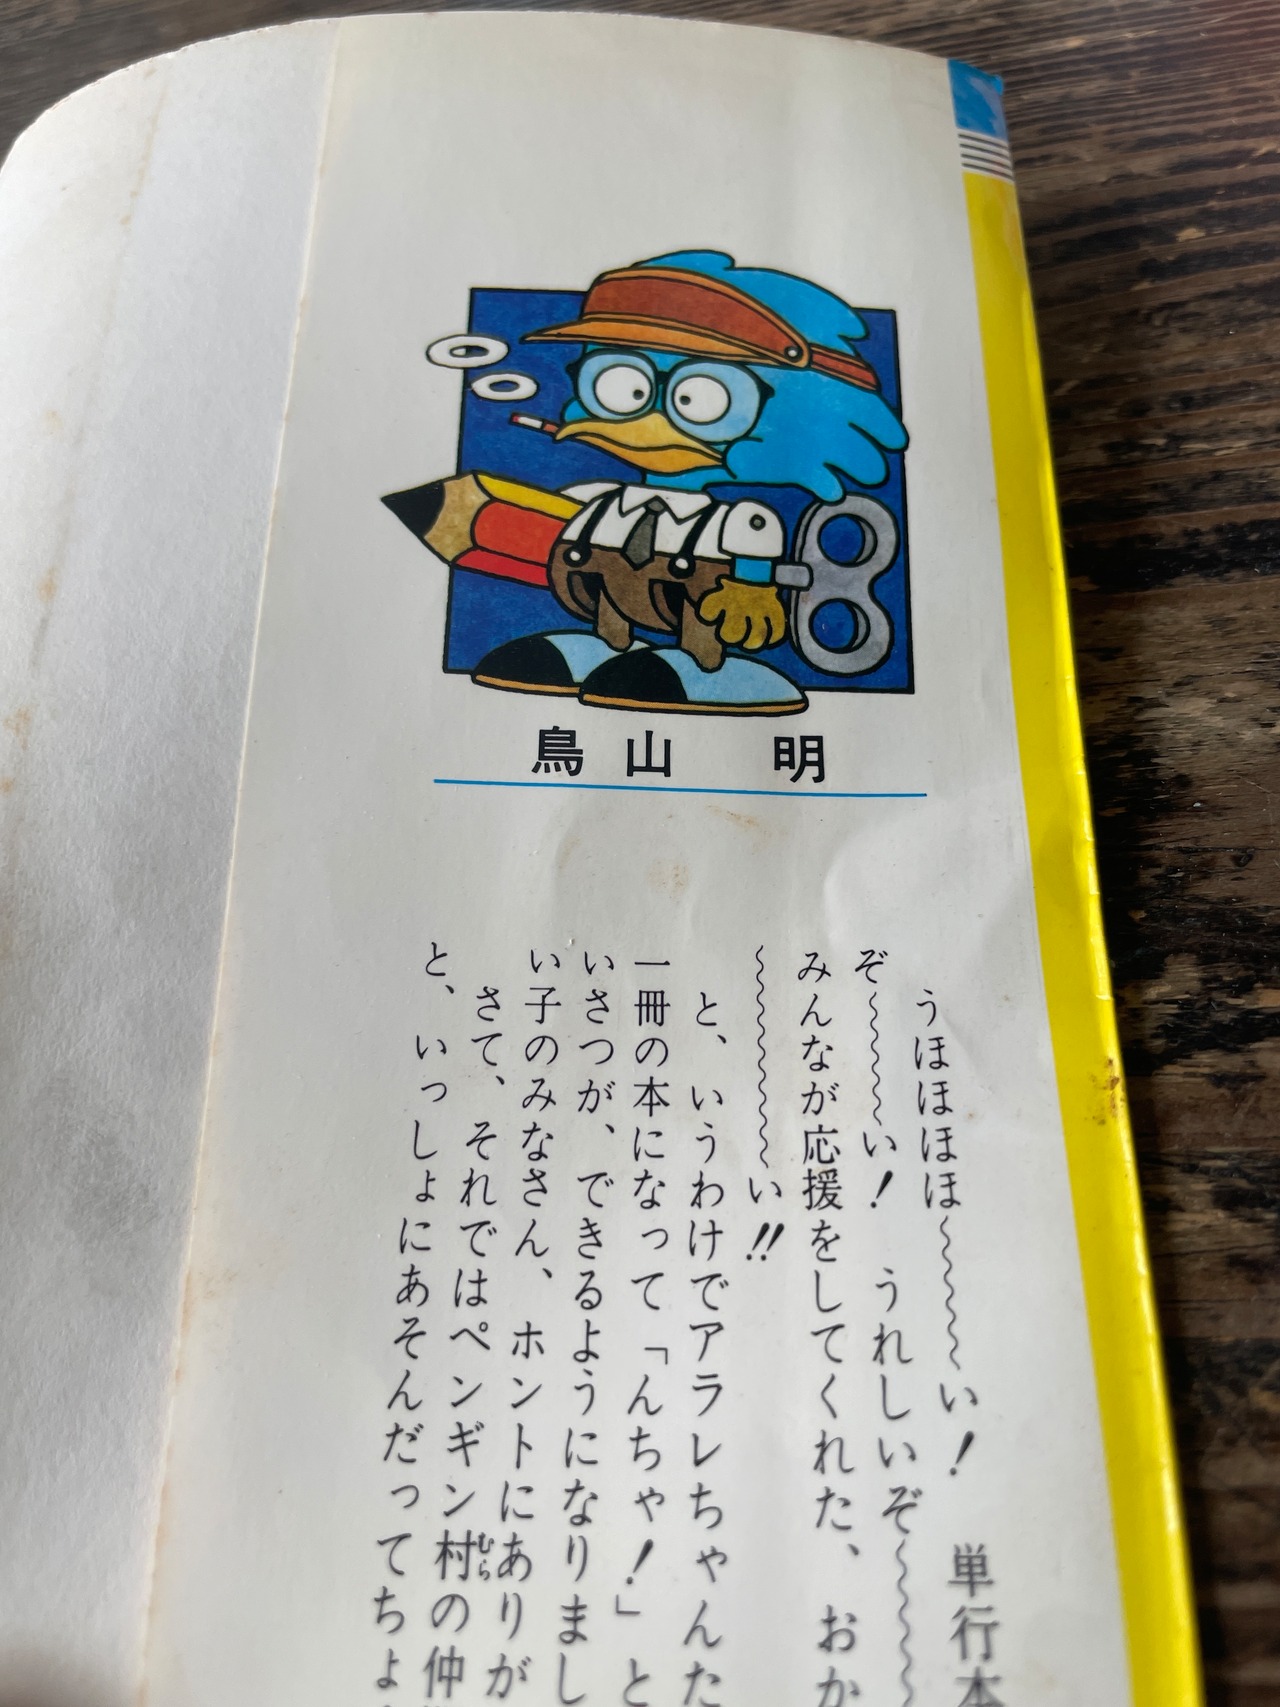 鳥山 明
うほほほほ〜〜〜い！ 単行本
ぞ〜〜〜い！ うれしいぞ〜〜〜
みんなが応援をしてくれた、おか
〜〜〜〜〜い!!
と、いうわけでアラレちゃんた
一冊の本になって「んちゃ！」と
いさつが、できるようになりまし
い子のみなさん、ホントにありが
さて、それではペンギン村むらの仲
と、いっしょにあそんだってちょ